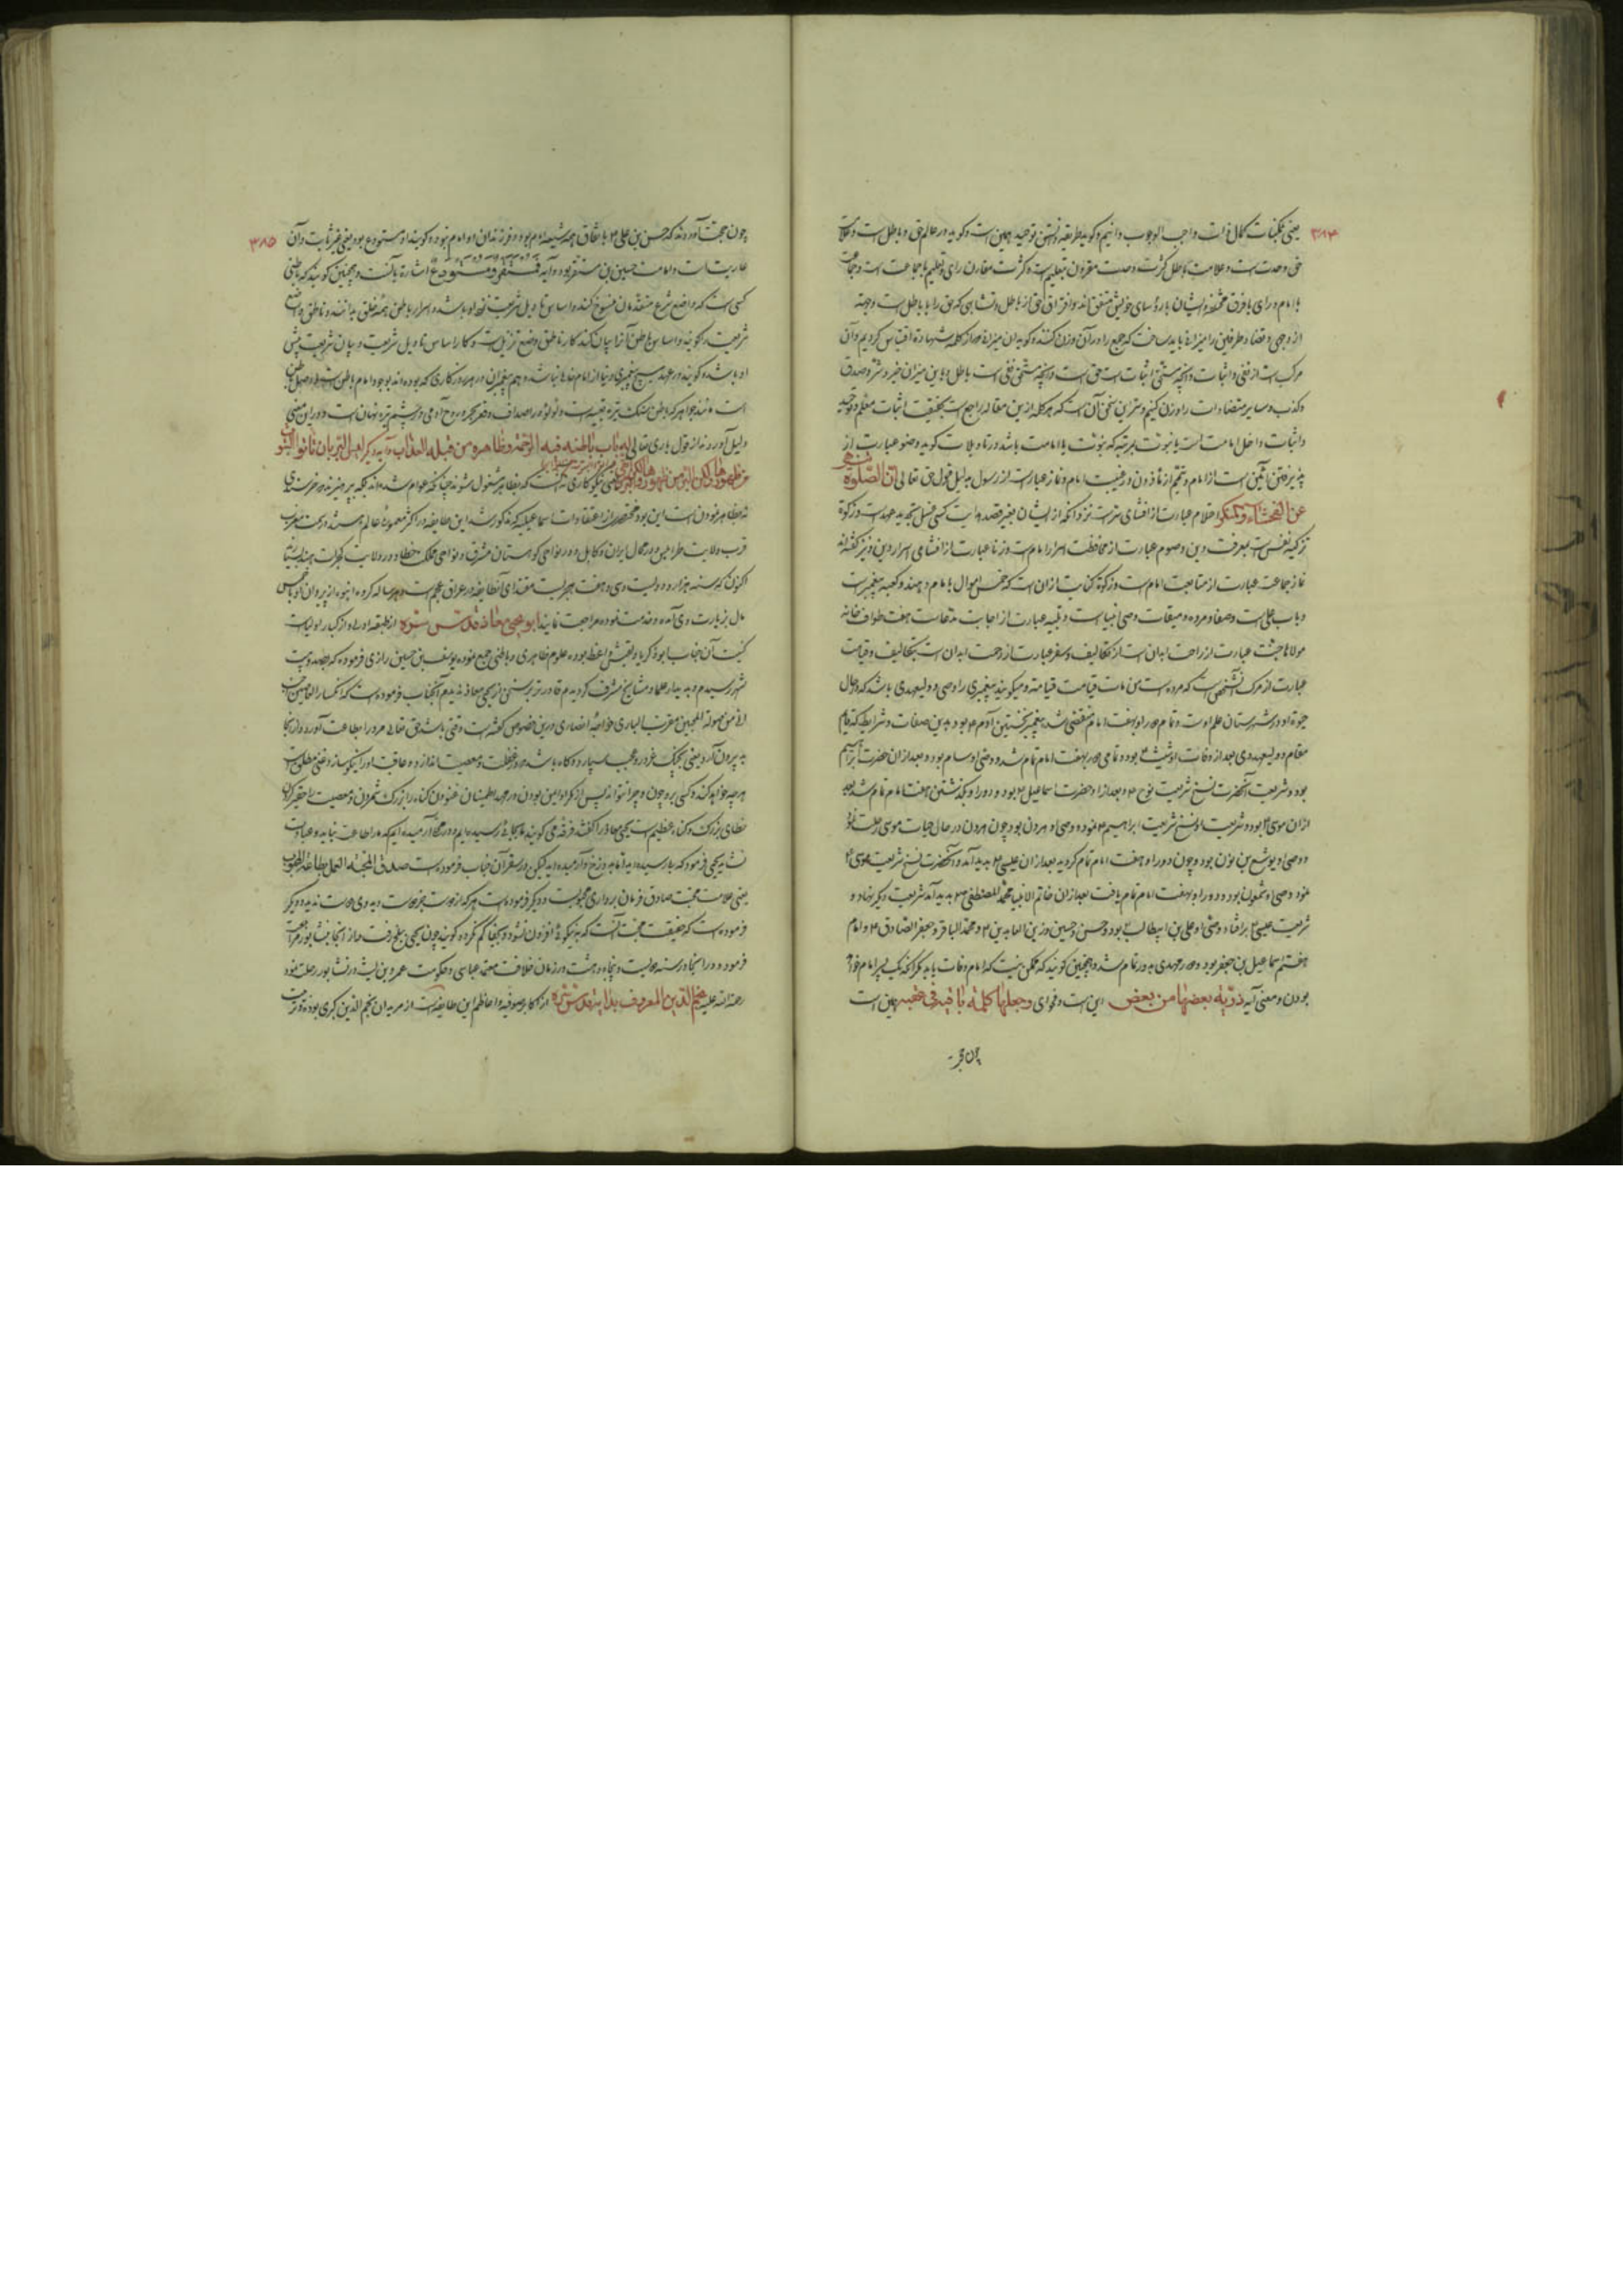 ۳۸۴
یعنی ممکنات کمال ذات واجب الوجوب دانیم و گوید طریقه دانستن توحید همین است و گوید در عالم حق و باطل است و علامت
حق وحدت است و علامت باطل کثرت وحدت مقرون بتعلیم است و کثرت مقارن رای و تعلیم با جماعت است و جماعت
با امام و رای با فرق مختلفه و ایشان با رؤسای خویش متفق اند و افتراق حق از باطل و تشابهی که حق را با باطل است وجهه
از وجهی و تضاد طرفین را میزانی باید ساخت که جمع را در آن وزن کنند و گوید این میزان را از کلمه شهادة اقتباس کردیم و آن
مرکب است از نفی و اثبات و آنچه مستحق اثبات است حق است و آنچه مستحق نفی است باطل و باین میزان خیر و شر و صدق
و کذب و سایر متضادات را وزن کنیم و سر این سخن آن است که هر کلمه ازین مقاله راجع است بحقیقت اثبات معلم و توحید
و اثبات داخل امامت است با نبوت بمرتبه که نبوت با امامت باشد در تاویلات گوید وضو عبارت از
پذیرفتن آئین است از امام و تیمم از مأذون در غیبت امام و نماز عبارت از رسول بدلیل قول حق تعالی ان الصلوة تنهی
عن الفحشاء و المنکر احتلام عبارت از افشای سر است نزد آنکه از ایشان بغیر قصد هدایت کسی غسل تجدید عهد است و زکوة
تزکیه نفس است بمعرفت دین و صوم عبارت از محافظت اسرار امام است و زنا عبارت از افشای اسرار دین و نیز گفته اند
نماز جماعت عبارت از متابعت امام است و زکوة کنایت از آن است که خمس اموال با امام دهند و کعبه پیغمبر است
و باب علی است و صفا و مروه و میقات وصی انبیاست و تلبیه عبارت از اجابت مدعاست هفت طواف خانه
مولانا جنت عبارت از راحت ابدان است از تکالیف و سقر عبارت از زحمت ابدان است بتکالیف و قیامت
عبارت از مرگ شخصی است که مرده است من مات قیامت قیامته و میگویند پیغمبری را وصی و ولیعهدی باشد که در حال
حیوة او در شهرستان علم اوست و تا دور او بهفت امام منقضی شد پیغمبر نخستین آدم ۴ بود بدین صفات و شرایط که قایم
مقام و ولیعهد وی بعد از وفات او شیث ۴ بود و تمامی دور بهفت امام تمام شد و وصی او سام بود و بعد از آن حضرت ابراهیم
بود و شریعت آنحضرت نسخ شریعت نوح ۴ و بعد از او حضرت اسماعیل ۴ بود و دور او بگذشتن هفت امام تمام شد بعد
از آن موسی ۴ بود و شریعت او نسخ شریعت ابراهیم ۴ نمود و وصی او هرون بود چون هرون در حال حیات موسی رحلت نمود
وصی او یوشع بن نون بود و چون دور او هفت امام تمام گردید بعد از آن عیسی ۴ پدید آمد و آنحضرت نسخ شریعت موسی ۴
نمود وصی او شمعون بود دور او بهفت امام تمام یافت بعد از آن خاتم الانبیا محمد المصطفی ۳ پدید آمد شریعت دیگر نهاد و
شریعت عیسی ۴ برافتاد و وصی او علی بن ابیطالب ۴ بود و حسن و حسین و زین العابدین ۴ و محمد الباقر و جعفر الصادق ۴ و امام
هفتم اسماعیل بن جعفر بود و دور مهدی بدور تمام شد و همچنین گویند که ممکن نیست که امام وفات یابد مگر آنکه یک پسر امام خواهد
بودن و معنی آیه ذریه بعضها من بعض این است و فحوای وجعلها کلمة باقیة فی عقبه همین است
چون
۳۸۵
چون حجت آوردند که حسن بن علی ۴ باتفاق همه شیعه امام بود و فرزندان او امام نبوده گویند او مستودع بود یعنی غیر ثابت و آن
عاریت است و امامت حسین بن مستقر بود و آیه فمستقر و مستودع اشارة بآنست و همچنین گویند که ناطق
کسی است که واضع شرع متقدمان منسوخ کند و اساس تاویل شریعت اسرار باطن همه خلق بدانند و ناطق واضع
شریعت را گویند و اساس باطن آنرا بیان کند کار ناطق وضع تنزیل است و کار اساس تاویل شریعت و بیان شریعت پیش
او باشد و گویند در عهد هیچ پیغمبری دنیا از امام خالی نباشد و هم پیغمبران در هر کاری که بوده اند بوجود امام
است مانند جواهر که باطن سنگ تیره تعبیه است و لؤلؤ در اصداف و قعر بحر و روح آدمی در جسم تیره پنهان است و در این معنی
دلیل آورده اند از قول باری تعالی له باب باطنه فیه الرحمة و ظاهره من قبله العذاب و آیه دیگر لیس البر بان تاتوا البیوت
من ظهورها ولکن البر من یعنی نیکوکاری نه آنست که بظاهر مشغول شوند چنانکه عوام شده اند
نه بظاهر نمودن است این بود مختصر از اعتقادات اسماعیلیه که مذکور شد این طایفه در اکثر معموره عالم هستند در سمت مغرب
قرب ولایت طرابلس و در جبال ایران و کابل و در نواحی کوهستان مشرق و نواحی مملکت خطا و در ولایت گجرات هند بسیار
اکنون که سنه هزار و دویست و سی و هفت هجریست مقتدای آنطایفه در عراق عجم است و هر ساله گروه انبوه از پیروان او با خمس
مال بزیارت وی آمده و خدمت نموده مراجعت نمایند ابو یحیی معاذ قدس سره از طبقه اولی و از کبار اولیاست
کنیت آن جناب ابو ذکریا و لقبش واعظ بوده علوم ظاهری و باطنی جمع نموده یوسف بن حسین رازی فرموده که بصد و بیست
شهر رسیدم و بدیدار علما و مشایخ مشرف گردیدم قادرتر بر سخن از یحیی معاذ ندیدم آنجناب فرموده است که انکسار العاصین احب
الی من صولة المطیعین و مقرب الباری خواجه انصاری درین خصوص گفته است وقتی باشد حق تعالی مرد را بطاعت آورد و از آنجا
به بیرون آرد یعنی بچنگ غرور و عجب سپارد و گاه باشد در غفلت و معصیت اندازد و عاقبت او را نیکو سازد غنی مطلق است
هر چه خواهد کند و کسی بر چون و چرا نتواند پس از مکر او ایمن بودن و در جهد اطمینان غنودن گناه را بزرگ شمردن و معصیت را حقیر کردن
خطای بزرگ و گناه عظیم است یحیی معاذ را گفتند فرقه می گویند ما بجائی رسیده ایم و در مقام آرمیده ایم که ما را طاعت نباید و عبادت
نشاید یحیی فرمود که رسیده اید اما بدوزخ و آرمیده اید لیکن در سقر آن جناب فرموده است صدق المحبة العمل بطاعة المحبوب
یعنی علامت محبت صادق فرمان برداری محبوبست و دیگر فرموده است هر که از دوست جز دوست دید وی دوست ندیده و دیگر
فرموده است که حقیقت محبت آنست که به نیکوئی افزون نشود و بجفا کم نگردد گویند چون یحیی ببلخ رفت و باز از آنجا بنیشابور مراجعت
فرموده و در آنجا در سنه دویست و پنجاه و هشت در زمان خلافت معتمد عباسی و حکومت عمرو بن لیث در نشابور رحلت نمود
رحمة الله علیه نجم الدین المعروف بدایة قدس سره از اکابر صوفیه و اعاظم این طایفه است از مریدان نجم الدین کبری بوده و تربیت